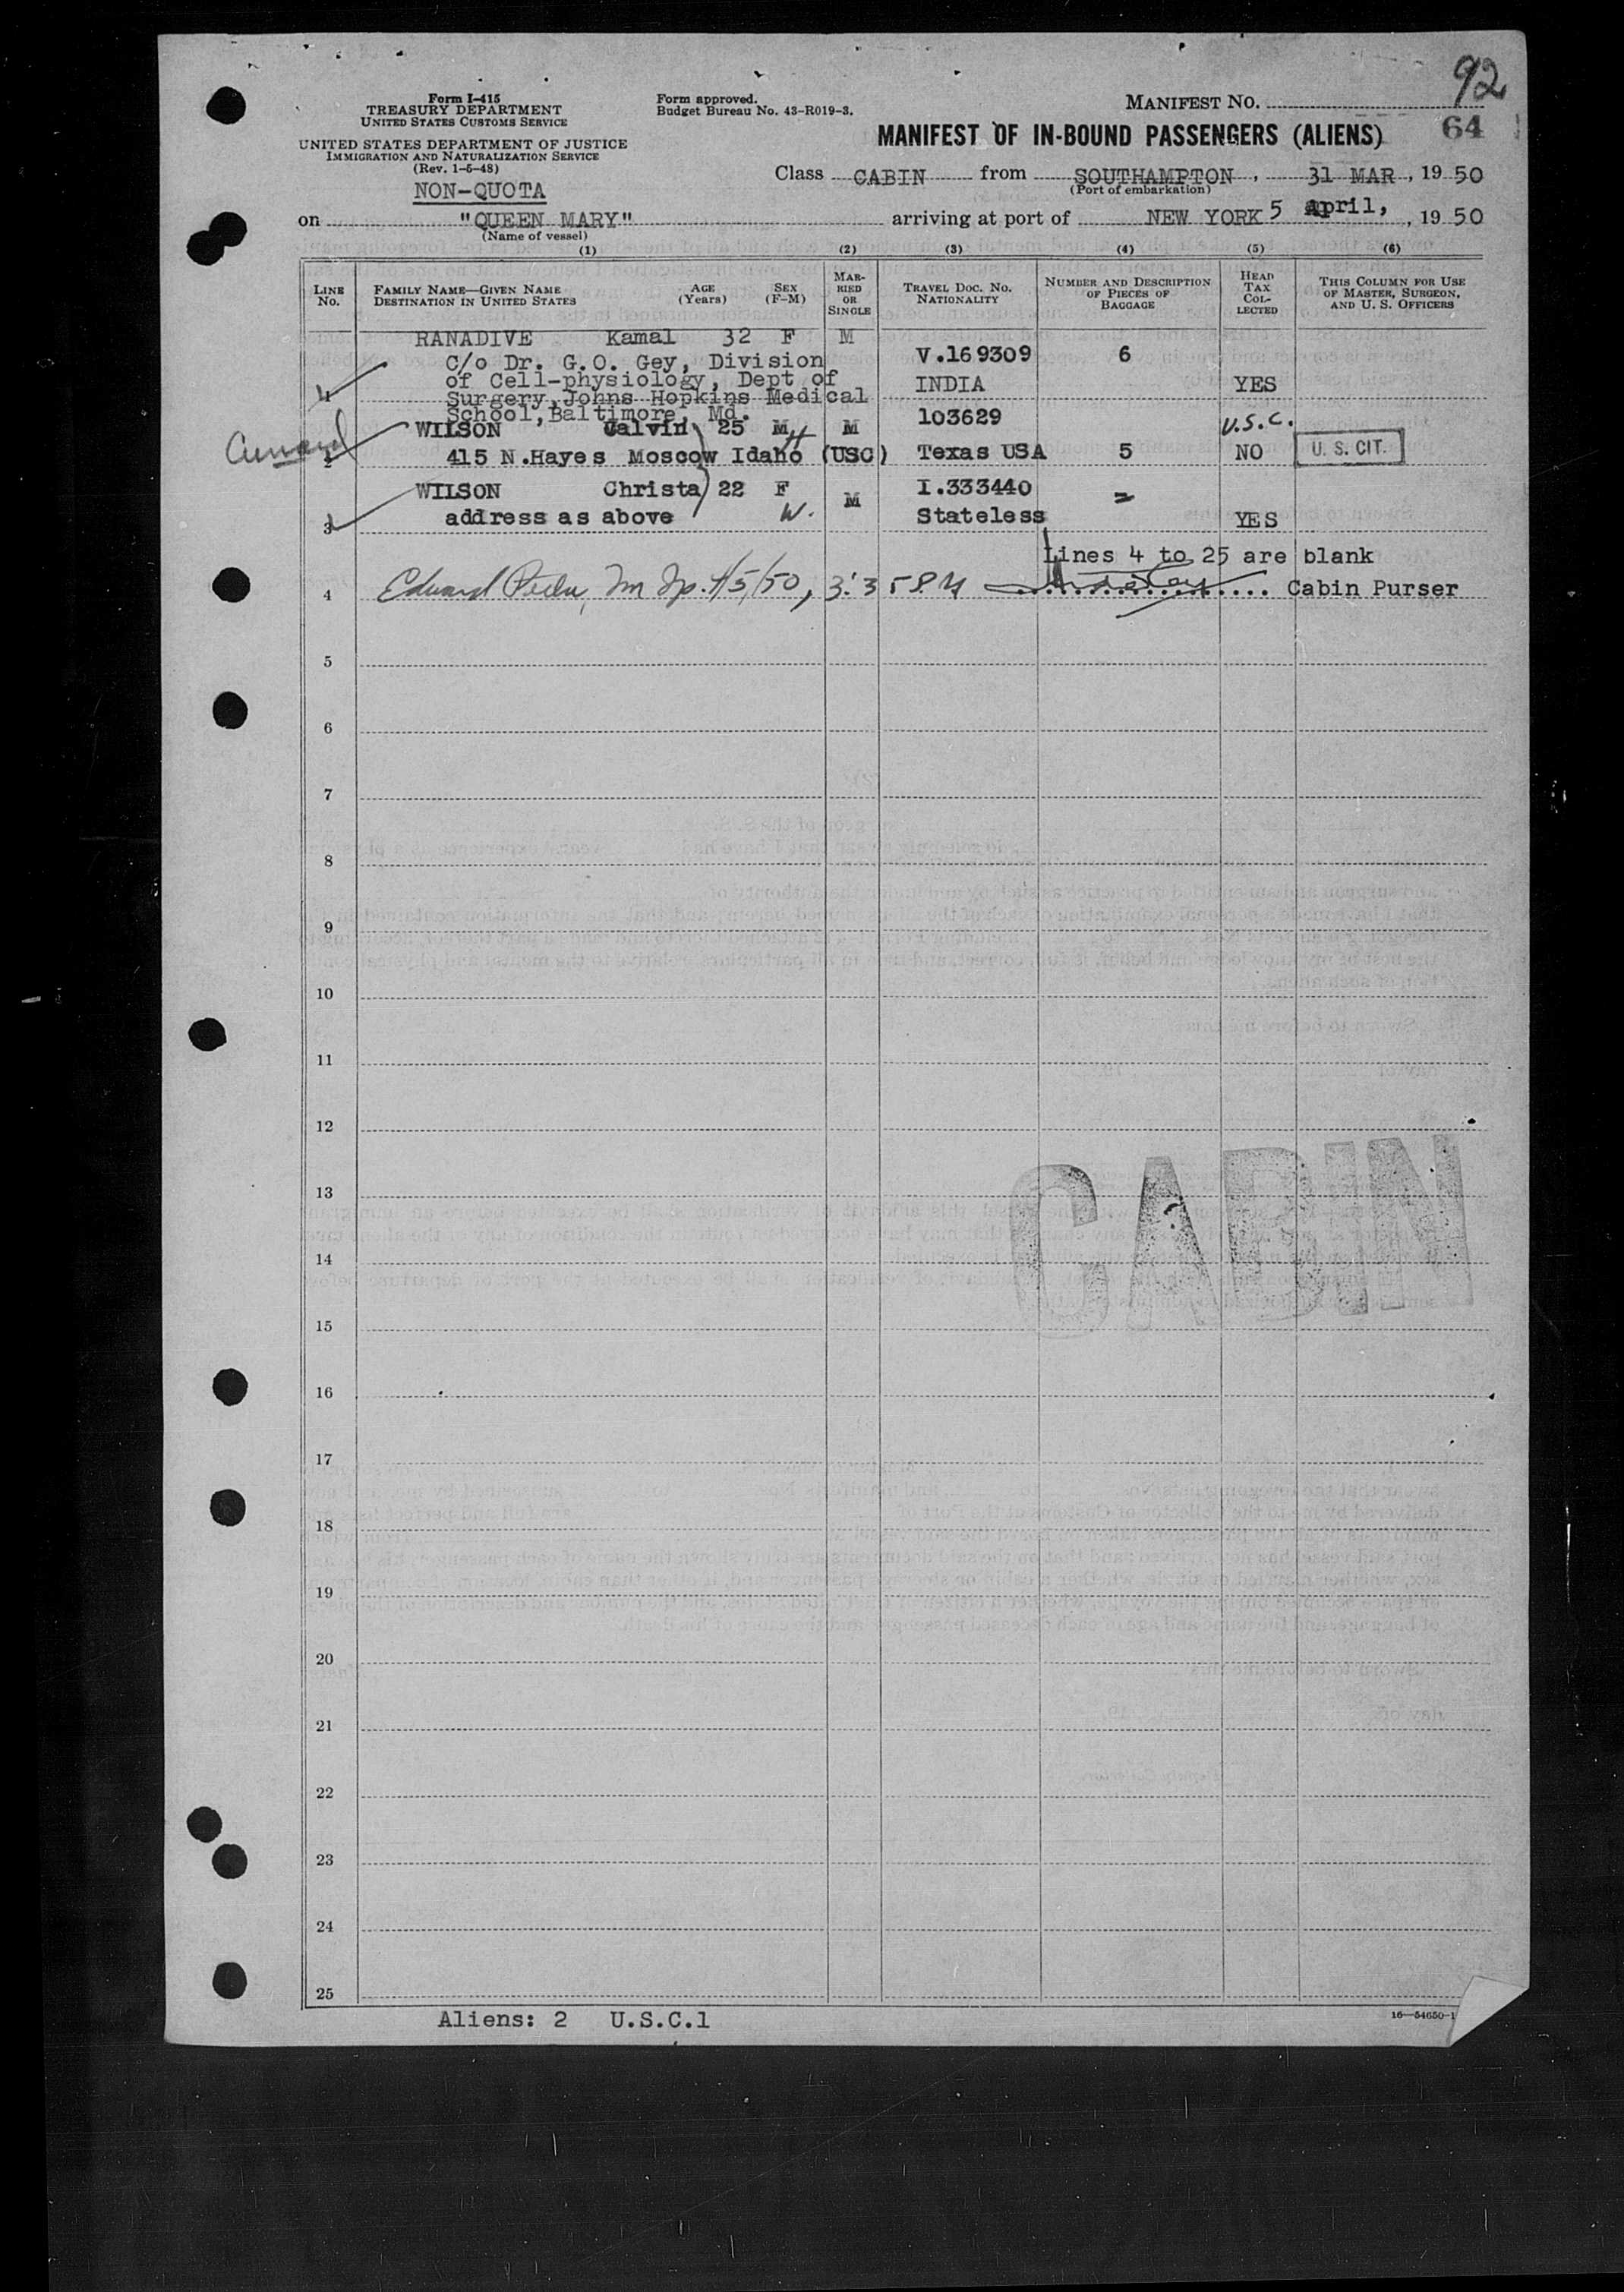 92
Form I-415
TREASURY DEPARTMENT
UNITED STATES CUSTOMS SERVICE
UNITED STATES DEPARTMENT OF JUSTICE
IMMIGRATION AND NATURALIZATION SERVICE
(Rev. 1-5-48)
NON-QUOTA
Form approved.
Budget Bureau No. 43-R019-3.
MANIFEST NO.
MANIFEST OF IN-BOUND PASSENGERS (ALIENS) 64
Class CABIN from SOUTHAMPTON, 31 MAR, 19 50
(Port of embarkation)
on "QUEEN MARY" arriving at port of NEW YORK 5 April, , 19 50
(Name of vessel)
(1) (2) (3) (4) (5) (6)
LINE No.
FAMILY NAME—GIVEN NAME
DESTINATION IN UNITED STATES
AGE (Years)
SEX (F-M)
MARRIED OR SINGLE
TRAVEL DOC. NO. NATIONALITY
NUMBER AND DESCRIPTION OF PIECES OF BAGGAGE
HEAD TAX COLLECTED
THIS COLUMN FOR USE OF MASTER, SURGEON, AND U. S. OFFICERS
RANADIVE Kamal 32 F M
C/o Dr. G.O. Gey, Division V.169309 6
of Cell-physiology, Dept of INDIA YES
Surgery,Johns Hopkins Medical
School,Baltimore, Md. 103629 U.S.C.
WILSON Calvin 25 M H M
2 415 N.Hayes Moscow Idaho (USC) Texas USA 5 NO U. S. CIT.
WILSON Christa 22 F M I.333440 =
3 address as above W. Stateless YES
Lines 4 to 25 are blank
4 Edward 4/5/50, 3:35 P.M Cabin Purser
5
6
7
8
9
10
11
12
13
CABIN
14
15
16
17
18
19
20
21
22
23
24
25
Aliens: 2 U.S.C.1
16—54650-1